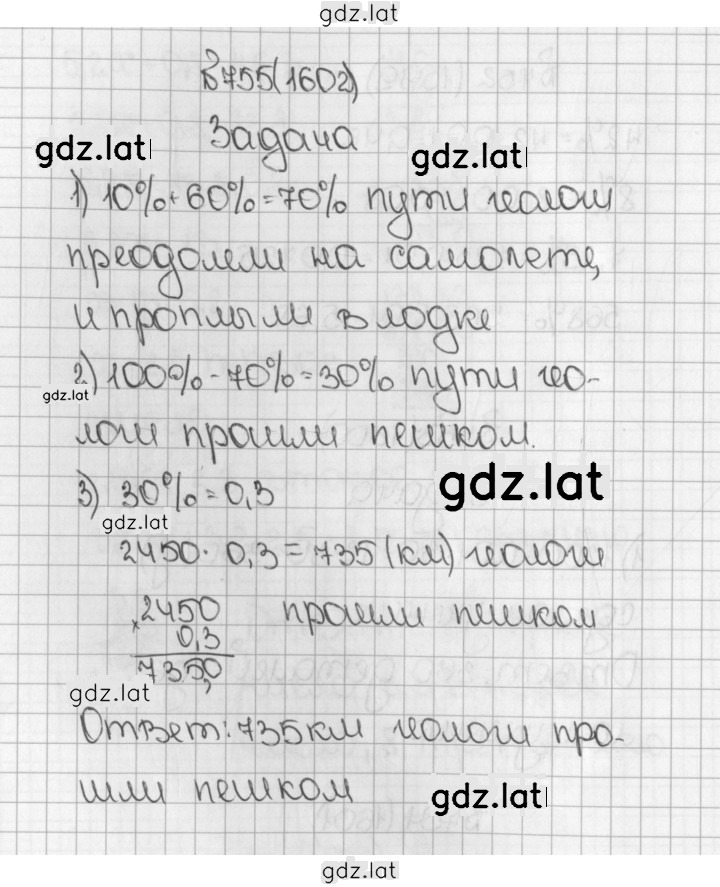 gdz.lat
В755(1602)
Задача
gdz.lat
gdz.lat
1) 10%+60%=70% пути геологи
преодолели на самолете,
и проплыли в лодке
2) 100%-70%=30% пути гео-
gdz.lat
логи прошли пешком.
3) 30%=0,3
gdz.lat
gdz.lat
2450·0,3=735(км) геологи
×2450 прошли пешком
0,3
735,0
gdz.lat
Ответ: 735км геологи про-
шли пешком
gdz.lat
gdz.lat